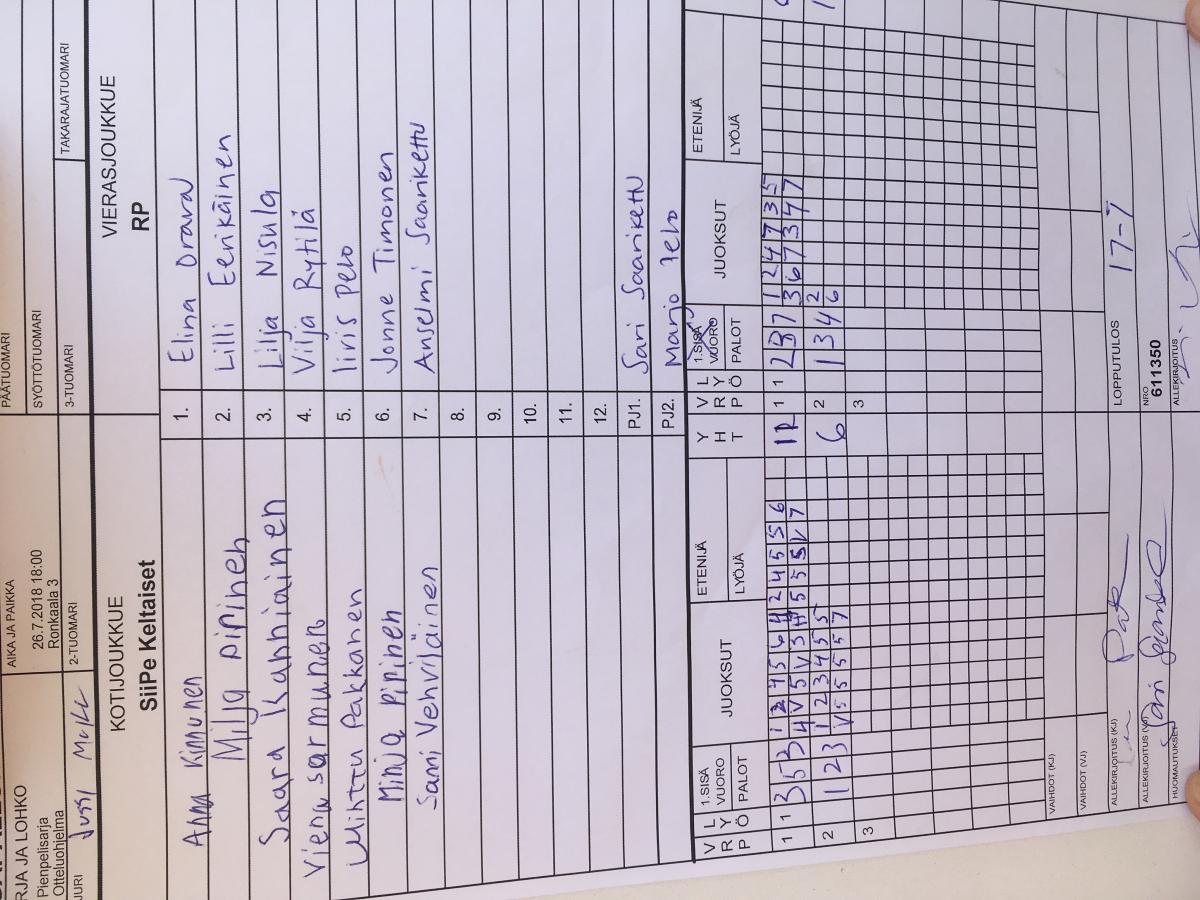 RJA JA LOHKO
Pienpelisarja
Otteluohjelma
AIKA JA PAIKKA
26.7.2018 18:00
Ronkaala 3
PÄÄTUOMARI
SYÖTTÖTUOMARI
JURI
Jussi
2-TUOMARI
3-TUOMARI
TAKARAJATUOMARI
KOTIJOUKKUE
SiiPe Keltaiset
VIERASJOUKKUE
RP
Anna Kinnunen
1.
Elina Orava
Milja PiPinen
2.
Lilli Eerikäinen
Saara Kanniainen
3.
Lilja Nisula
Viena sarmunen
4.
Vilja Rytilä
Minttu Pakkanen
5.
Iiris Pelo
Minja PiPinen
6.
Jonne Timonen
Sanni Vehviläinen
7.
Anselmi Saarikettu
8.
9.
10.
11.
12.
PJ1.
Sari Saarikettu
PJ2.
Marjo Pelo
V L
R Y
P Ö
1.SISÄ
VUORO
PALOT
JUOKSUT
ETENIJÄ
LYÖJÄ
Y
H
T
V L
R Y
P Ö
1.SISÄ
VUORO
PALOT
JUOKSUT
ETENIJÄ
LYÖJÄ
1 1 3 5 3
1 1 2 3 7
1 2 4 7 3 5
3 6 7 3 4 7
2 1 2 3
1 2 3 4 5 5
V 5 5 5 5 7
6
2 1 3 4
2
6
3
3
VAIHDOT (KJ)
VAIHDOT (VJ)
ALLEKIRJOITUS (KJ)
LOPPUTULOS 17-7
ALLEKIRJOITUS (VJ)
NRO
611350
HUOMAUTUKSET
ALLEKIRJOITUS